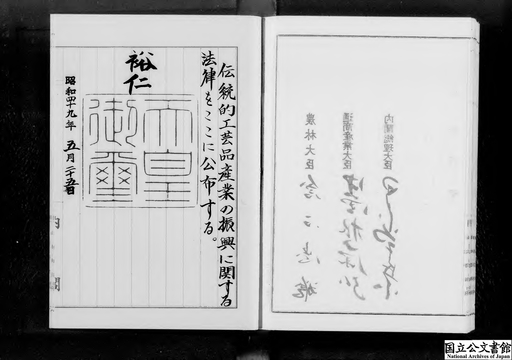 伝統的工芸品産業の振興に関する
法律をここに公布する。
裕仁
天皇
御璽
昭和四十九年五月二十五日
内閣
内閣総理大臣
通商産業大臣
農林大臣
国立公文書館
National Archives of Japan